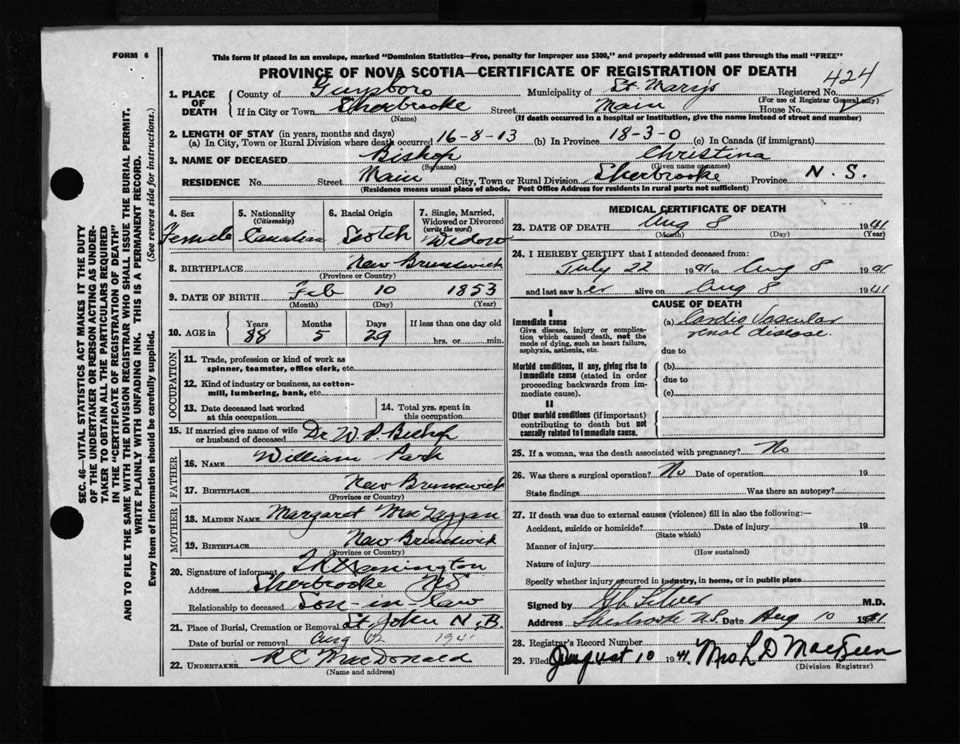 FORM 6
This form if placed in an envelope, marked "Dominion Statistics—Free, penalty for improper use $300," and properly addressed will pass through the mail "FREE"
PROVINCE OF NOVA SCOTIA—CERTIFICATE OF REGISTRATION OF DEATH
424
1. PLACE OF DEATH
County of Guysboro Municipality of St. Mary's Registered No.
(For use of Registrar General only)
If in City or Town Sherbrooke Street Main House No.
(Name) (If death occurred in a hospital or institution, give the name instead of street and number)
2. LENGTH OF STAY (in years, months and days)
(a) In City, Town or Rural Division where death occurred 16-8-13 (b) In Province 18-3-0 (c) In Canada (if immigrant)
3. NAME OF DECEASED Bishop Christina
(Surname) (Given name or names)
RESIDENCE No. Street Main City, Town or Rural Division Sherbrooke Province N. S.
(Residence means usual place of abode. Post Office Address for residents in rural parts not sufficient)
4. Sex Female
5. Nationality (Citizenship) Canadian
6. Racial Origin Scotch
7. Single, Married, Widowed or Divorced (write the word) Widow
8. BIRTHPLACE New Brunswick
(Province or Country)
9. DATE OF BIRTH Feb 10 1853
(Month) (Day) (Year)
10. AGE in Years 88 Months 5 Days 29 If less than one day old hrs. or min.
OCCUPATION
11. Trade, profession or kind of work as spinner, teamster, office clerk, etc.
12. Kind of industry or business, as cotton-mill, lumbering, bank, etc.
13. Date deceased last worked at this occupation
14. Total yrs. spent in this occupation
15. If married give name of wife or husband of deceased Dr. W. P. Bishop
FATHER
16. NAME William Park
17. BIRTHPLACE New Brunswick
(Province or Country)
MOTHER
18. MAIDEN NAME Margaret
19. BIRTHPLACE New Brunswick
(Province or Country)
20. Signature of informant
Address Sherbrooke NS
Relationship to deceased Son-in-law
21. Place of Burial, Cremation or Removal St. John N. B.
Date of burial or removal Aug 12 1941
22. UNDERTAKER R C MacDonald
(Name and address)
MEDICAL CERTIFICATE OF DEATH
23. DATE OF DEATH Aug 8 1941
(Month) (Day) (Year)
24. I HEREBY CERTIFY that I attended deceased from:
July 22 1941 to Aug 8 1941
and last saw her alive on Aug 8 1941
CAUSE OF DEATH
I
Immediate cause
Give disease, injury or complication which caused death, not the mode of dying, such as heart failure, asphyxia, asthenia, etc.
(a) Cardio Vascular renal disease
due to
Morbid conditions, if any, giving rise to immediate cause (stated in order proceeding backwards from immediate cause).
(b)
due to
(c)
II
Other morbid conditions (if important) contributing to death but not causally related to immediate cause.
25. If a woman, was the death associated with pregnancy? No
26. Was there a surgical operation? No Date of operation 19
State findings Was there an autopsy?
27. If death was due to external causes (violence) fill in also the following:—
Accident, suicide or homicide? Date of injury 19
(State which)
Manner of injury
(How sustained)
Nature of injury
Specify whether injury occurred in industry, in home, or in public place
Signed by M.D.
Address Sherbrooke N.S. Date Aug 10 1941
28. Registrar's Record Number
29. Filed August 10 1941 Mrs L D
(Division Registrar)
SEC. 46—VITAL STATISTICS ACT MAKES IT THE DUTY
OF THE UNDERTAKER OR PERSON ACTING AS UNDER-
TAKER TO OBTAIN ALL THE PARTICULARS REQUIRED
IN THE "CERTIFICATE OF REGISTRATION OF DEATH"
AND TO FILE THE SAME WITH THE DIVISION REGISTRAR WHO SHALL ISSUE THE BURIAL PERMIT.
WRITE PLAINLY WITH UNFADING INK. THIS IS A PERMANENT RECORD.
Every item of information should be carefully supplied. (See reverse side for instructions.)